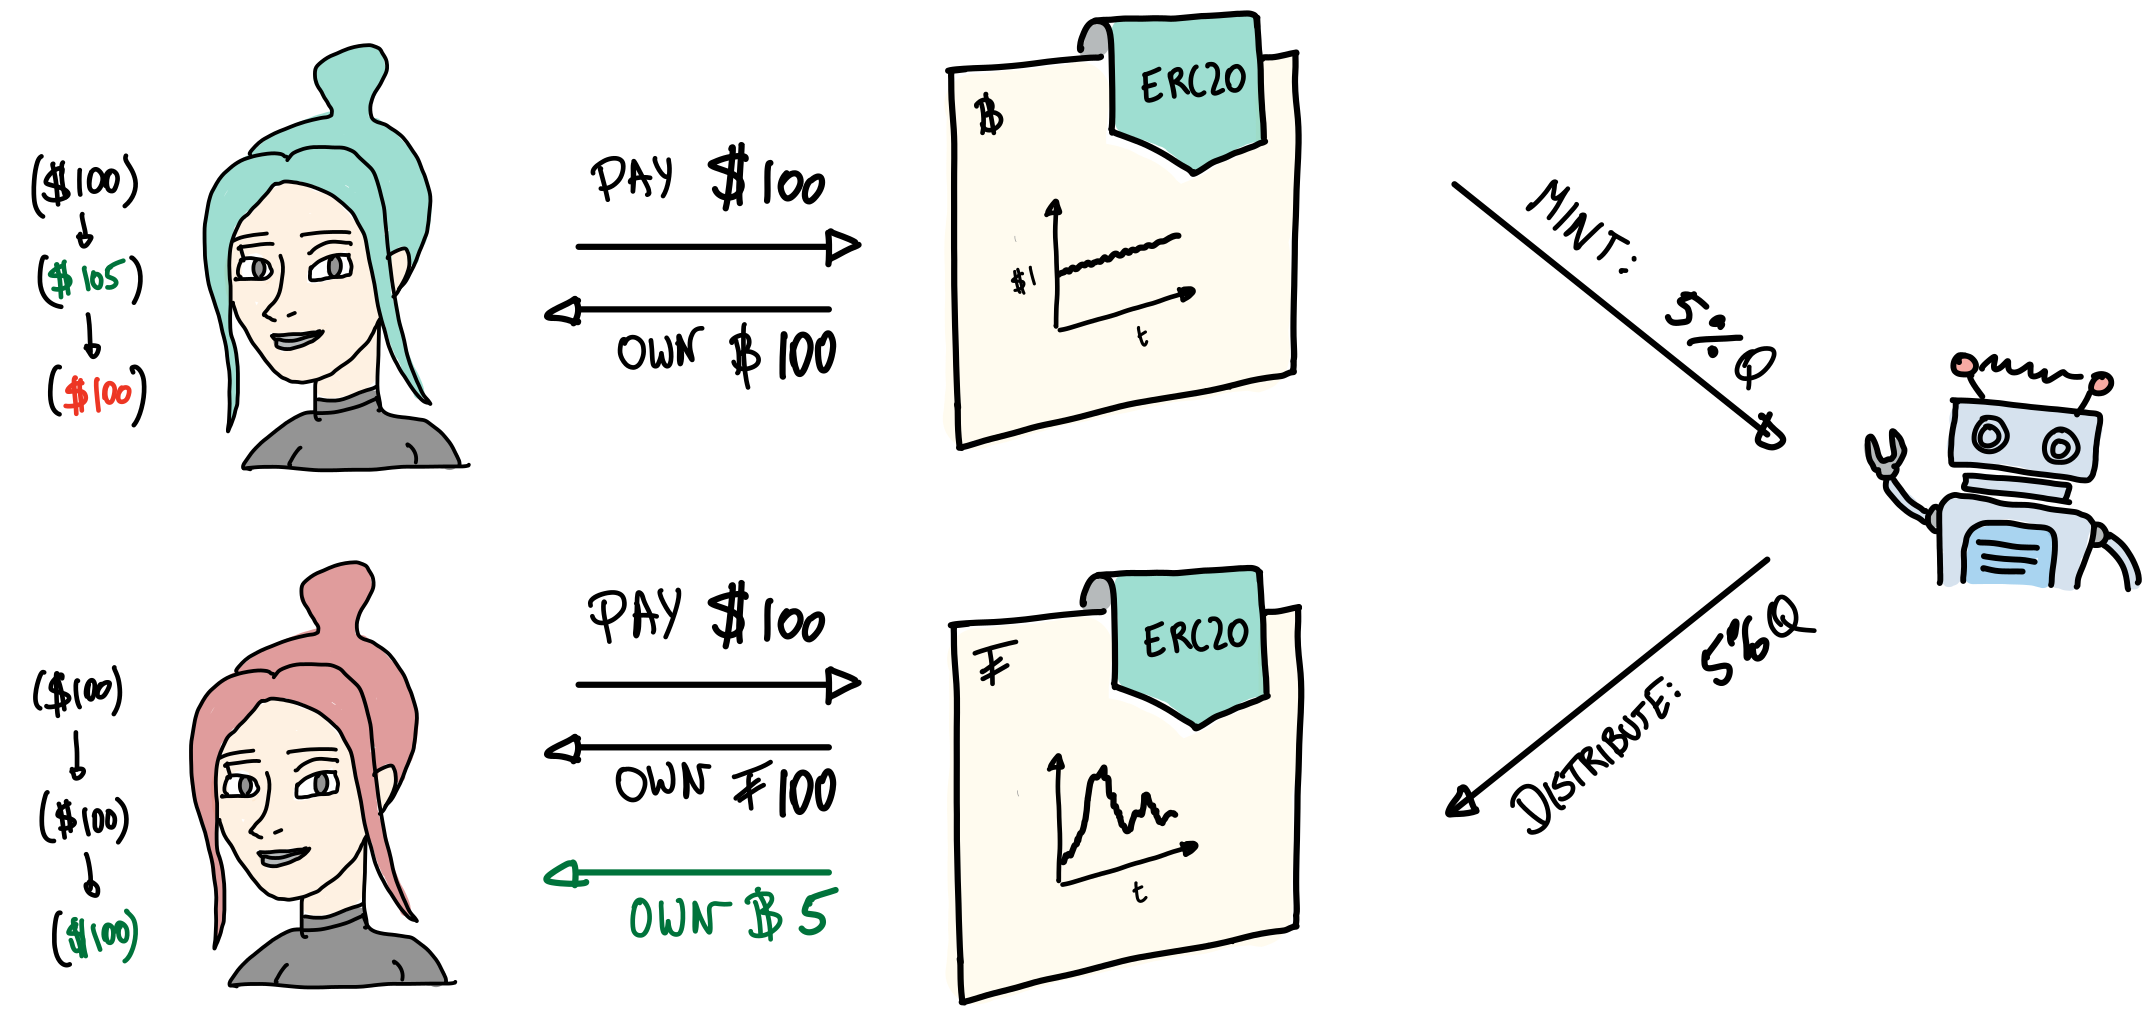 ($100)
($105)
($100)
PAY $100
OWN ฿ 100
ERC20
฿
$1
t
MINT: 5% Q
($100)
($100)
($100)
PAY $100
OWN 100
OWN ฿ 5
ERC20
t
DISTRIBUTE: 5% Q